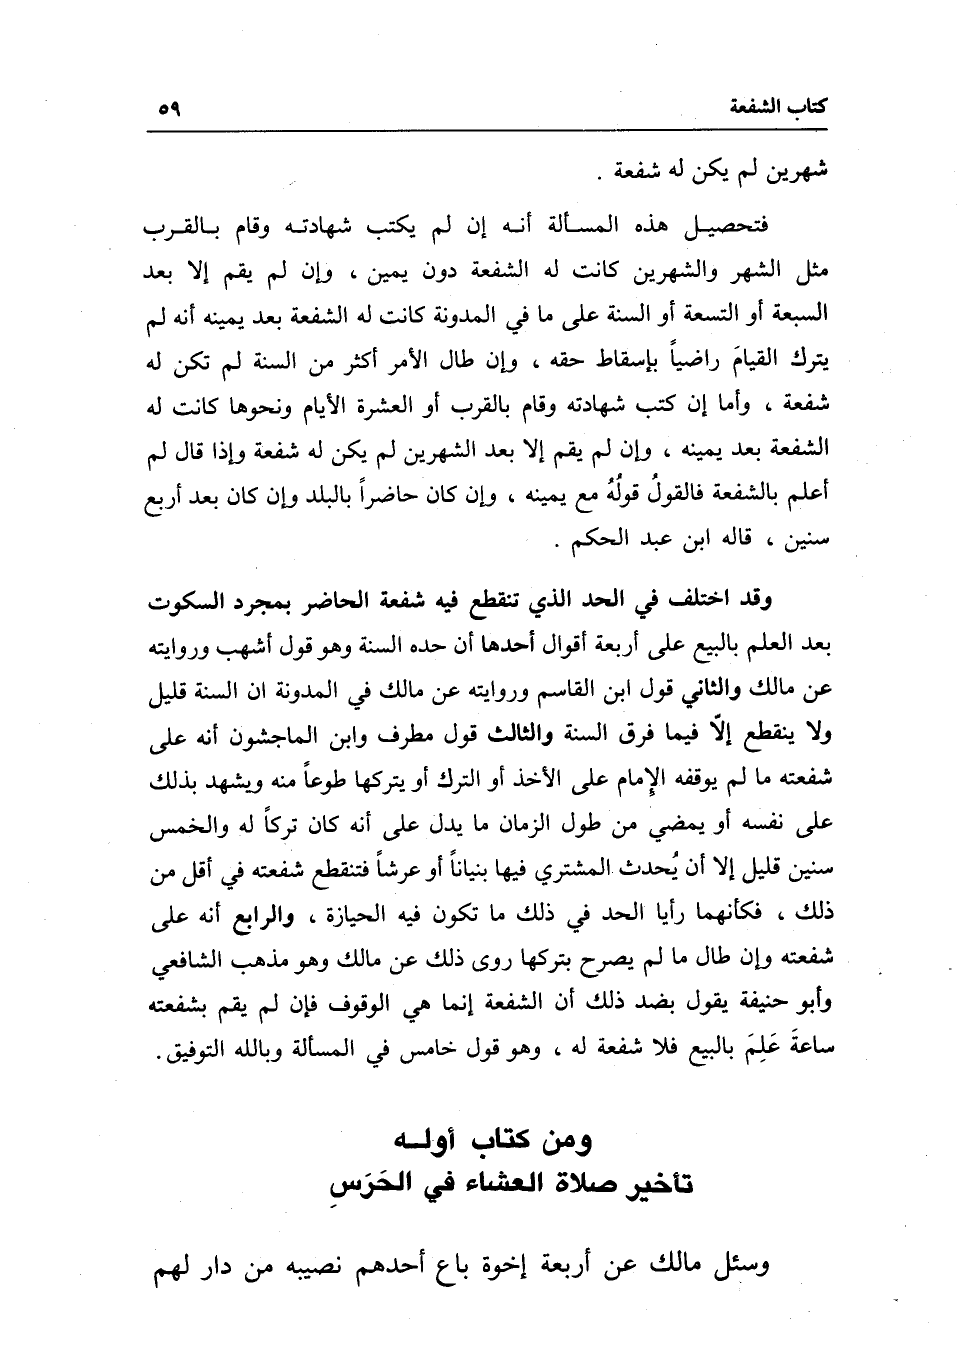 كتاب الشفعة ٥٩
شهرين لم يكن له شفعة .
فتحصيل هذه المسألة أنه إن لم يكتب شهادته وقام بالقرب
مثل الشهر والشهرين كانت له الشفعة دون يمين ، وإن لم يقم إلا بعد
السبعة أو التسعة أو السنة على ما في المدونة كانت له الشفعة بعد يمينه أنه لم
يترك القيامَ راضياً بإسقاط حقه ، وإن طال الأمر أكثر من السنة لم تكن له
شفعة ، وأما إن كتب شهادته وقام بالقرب أو العشرة الأيام ونحوها كانت له
الشفعة بعد يمينه ، وإن لم يقم إلا بعد الشهرين لم يكن له شفعة وإذا قال لم
أعلم بالشفعة فالقولُ قولُهُ مع يمينه ، وإن كان حاضراً بالبلد وإن كان بعد أربع
سنين ، قاله ابن عبد الحكم .
وقد اختلف في الحد الذي تنقطع فيه شفعة الحاضر بمجرد السكوت
بعد العلم بالبيع على أربعة أقوال أحدها أن حده السنة وهو قول أشهب وروايته
عن مالك والثاني قول ابن القاسم وروايته عن مالك في المدونة ان السنة قليل
ولا ينقطع إلّا فيما فرق السنة والثالث قول مطرف وابن الماجشون أنه على
شفعته ما لم يوقفه الإمام على الأخذ أو الترك أو يتركها طوعاً منه ويشهد بذلك
على نفسه أو يمضي من طول الزمان ما يدل على أنه كان تركاً له والخمس
سنين قليل إلا أن يُحدث المشتري فيها بنياناً أو عرشاً فتنقطع شفعته في أقل من
ذلك ، فكأنهما رأيا الحد في ذلك ما تكون فيه الحيازة ، والرابع أنه على
شفعته وإن طال ما لم يصرح بتركها روى ذلك عن مالك وهو مذهب الشافعي
وأبو حنيفة يقول بضد ذلك أن الشفعة إنما هي الوقوف فإن لم يقم بشفعته
ساعةَ عَلِمَ بالبيع فلا شفعة له ، وهو قول خامس في المسألة وبالله التوفيق.
ومن كتاب أوله
تأخير صلاة العشاء في الحَرَسِ
وسئل مالك عن أربعة إخوة باع أحدهم نصيبه من دار لهم